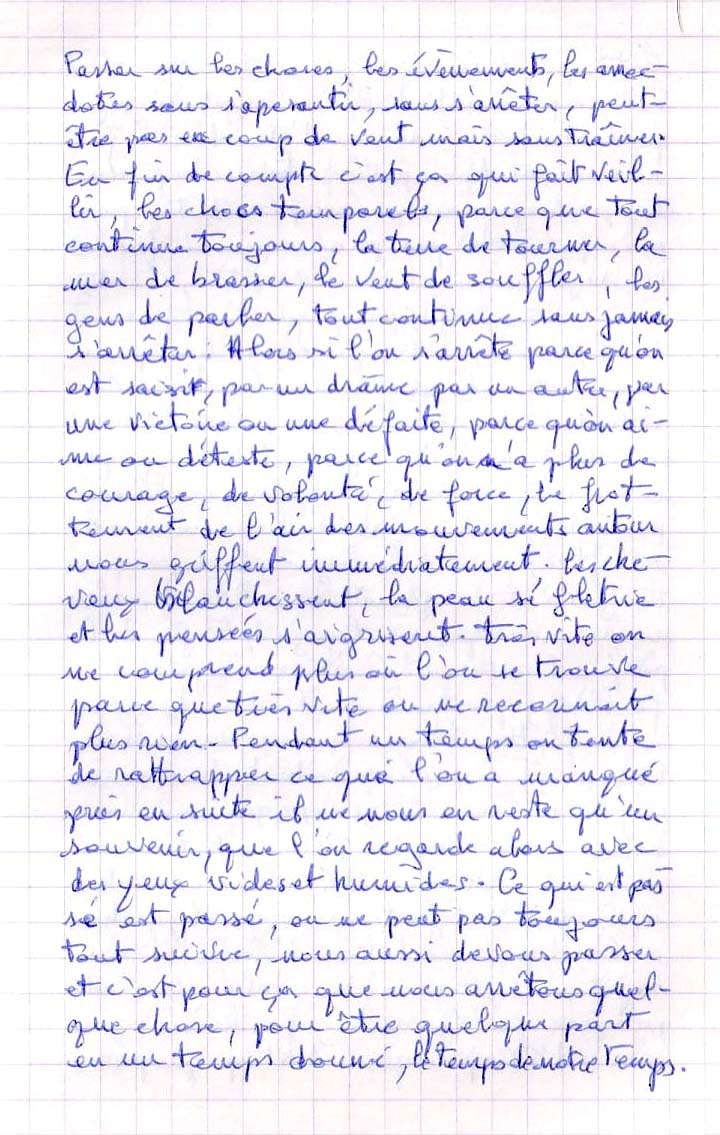 Passer sur les choses, les évènements, les anec-
dotes sans s'apesantir, sans s'arrêter, peut-
être pas en coup de vent mais sans traîner.
En fin de compte c'est ça qui fait veil-
lir, les chocs temporels, parce que tout
continue toujours, la terre de tourner, la
mer de brasser, le vent de souffler, les
gens de parler, tout continue sans jamais
s'arrêter. Alors si l'on s'arrête parce qu'on
est saisit, par un drâme par un autre, par
une victoire ou une défaite, parce qu'on ai-
me ou déteste, parce qu'on n'a plus de
courage, de volonté, de force, le frot-
tement de l'air des mouvements autour
nous griffent immédiatement. Les che-
veux blanchissent, la peau se flétrie
et les pensées s'aigrissent. Très vite on
ne comprend plus où l'on se trouve
parce que très vite on ne reconnait
plus rien. Pendant un temps on tente
de rattrapper ce que l'on a manqué
puis en suite il ne nous en reste qu'un
souvenir, que l'on regarde alors avec
des yeux vides et humides. Ce qui est pas
sé est passé, on ne peut pas toujours
tout suivre, nous aussi devons passer
et c'est pour ça que nous arrêtons quel-
que chose, pour être quelque part
en un temps donné, le temps de notre temps.